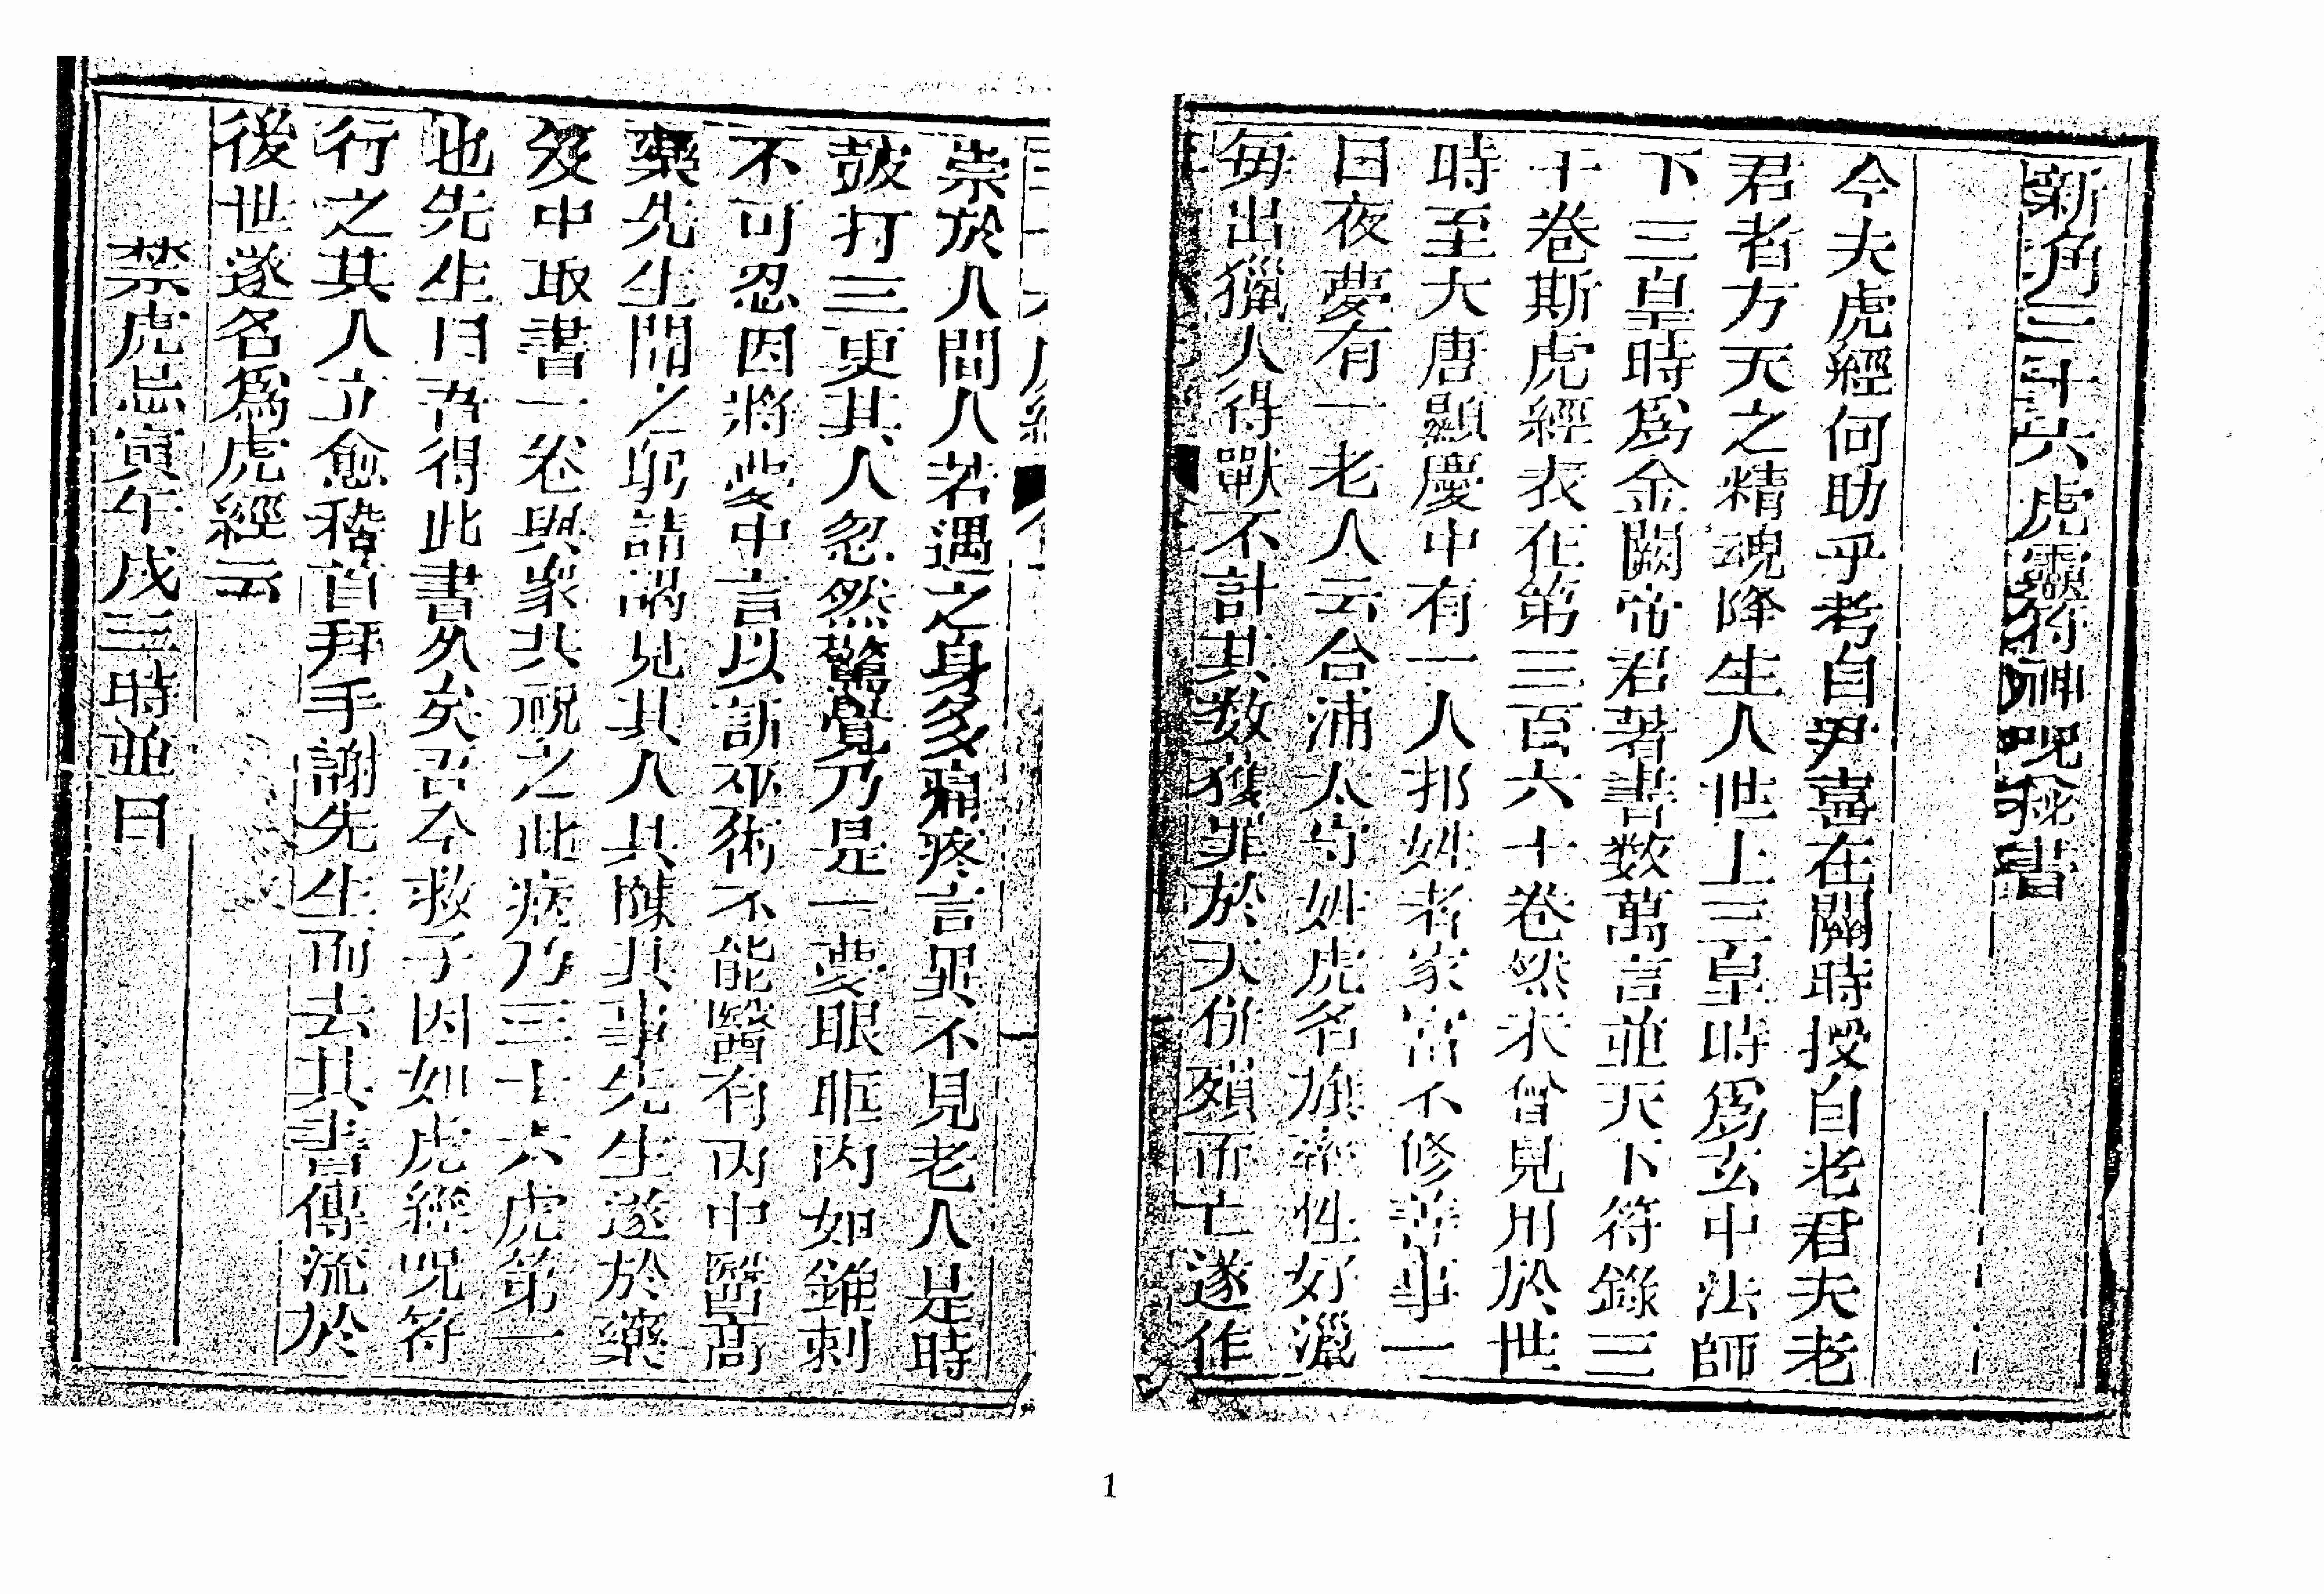 新角三十六虎靈符神呪秘書
今夫虎經何助乎考自尹喜在關時授自老君夫老
君者方天之精魂降生人世上三皇時爲玄中法師
下三皇時爲金闕帝君著書数萬言並天下符錄三
十卷斯虎經表在第三百六十卷然未曾見用於世
時至大唐顯慶中有一人邦姓者家富不修善事一
日夜夢有一老人云合浦太守姓虎名旗率性好獵
每出獵人得獸不計其数獲罪於天併殞而亡遂作
祟於人間人若遇之身多痛疼言畢不見老人是時
皷打三更其人忽然驚覺乃是一夢眼眶内如錐刺
不可忍因將夢中言以訴巫術不能醫有丙中醫高
藥先生聞之即請詣見其人具陳其事先生遂於藥
笈中取書一卷與衆共視之此病乃三十六虎第一
也先生曰吾得此書久矣吾今救子因如虎經呪符
行之其人立愈稽首拜手謝先生而去其書傳流於
後世遂名爲虎經云
禁虎忌寅午戌三時並日
1